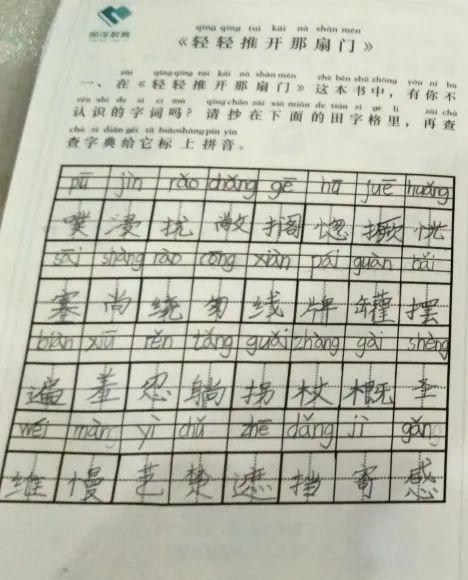 qīng qīng tuī kāi nà shàn mén
《轻轻推开那扇门》
zài qīng qīng tuī kāi nà shàn mén zhè běn shū zhōng yǒu nǐ bú
一、在《轻轻推开那扇门》这本书中，有你不
rèn shi de zì cí ma qǐng chāo zài xià miàn de tián zì gé lǐ zài chá
认识的字词吗？请抄在下面的田字格里，再查
chá zì diǎn gěi tā biāo shàng pīn yīn
查字典给它标上拼音。
pū jìn ráo chǎng gē hū juē huǎng
噗 浸 挠 敞 搁 惚 撅 恍
sāi shàng rào cōng xiàn pái guàn bǎi
塞 尚 绕 匆 线 牌 罐 摆
biàn xiū rěn tǎng guǎi zhàng gài shèng
遍 羞 忍 躺 拐 杖 概
wéi màn yì chǔ zhē dǎng jì gǎn
维 慢 艺 楚 遮 挡 寄 感